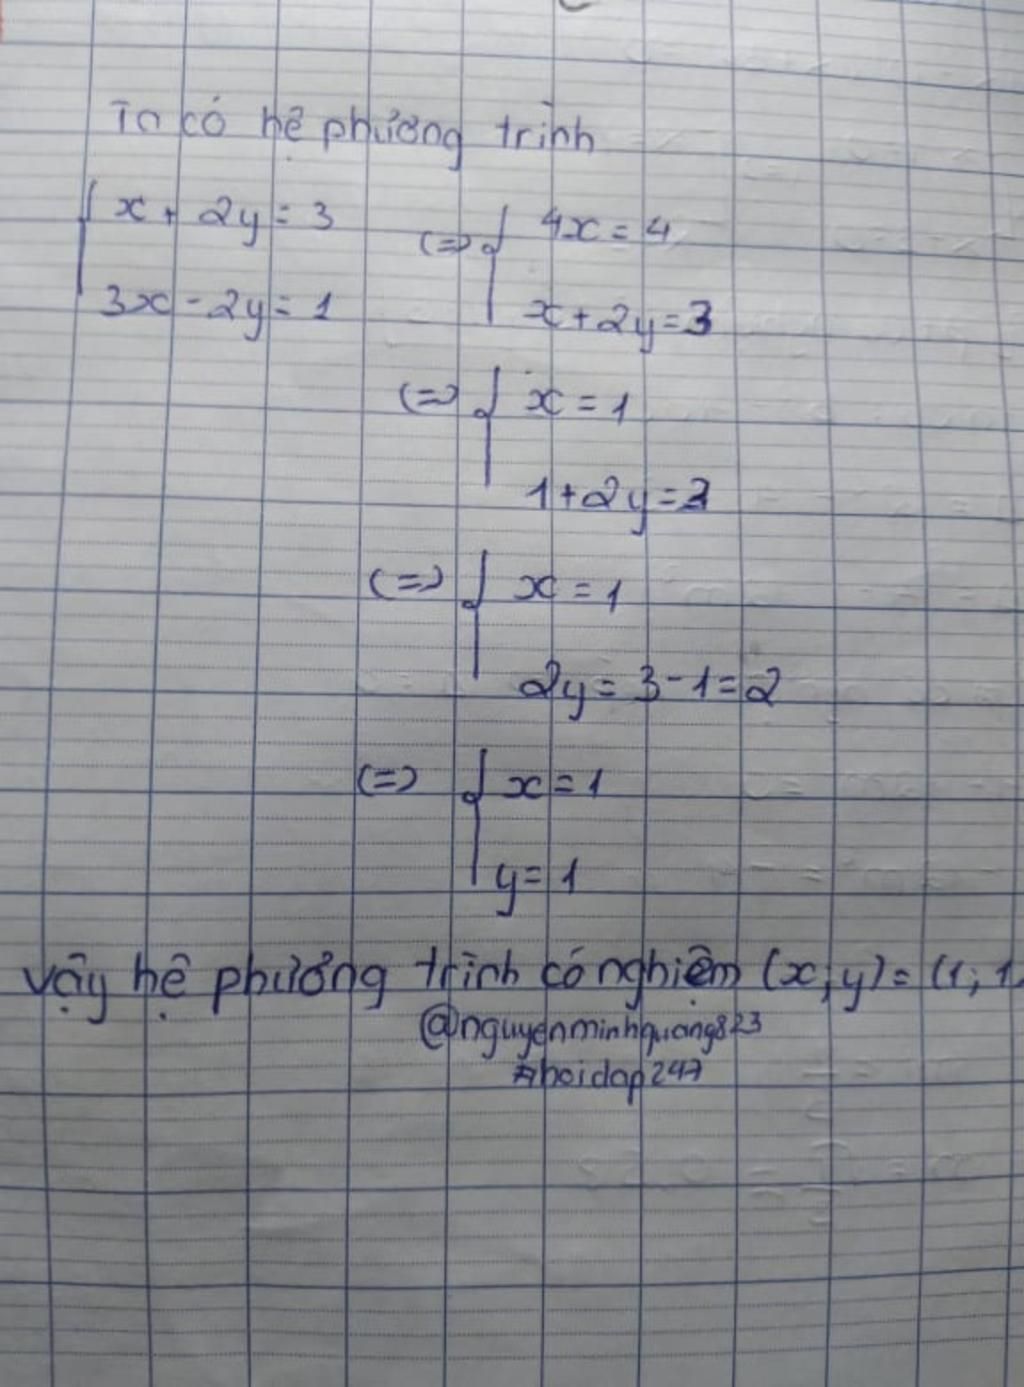 Ta có hệ phương trình
x + 2y = 3 (=) 4x = 4
3x - 2y = 1 x + 2y = 3
(=) x = 1
1 + 2y = 3
(=) x = 1
2y = 3 - 1 = 2
(=) x = 1
y = 1
Vậy hệ phương trình có nghiệm (x; y) = (1; 1
@nguyenminhquang823
#hoidap247